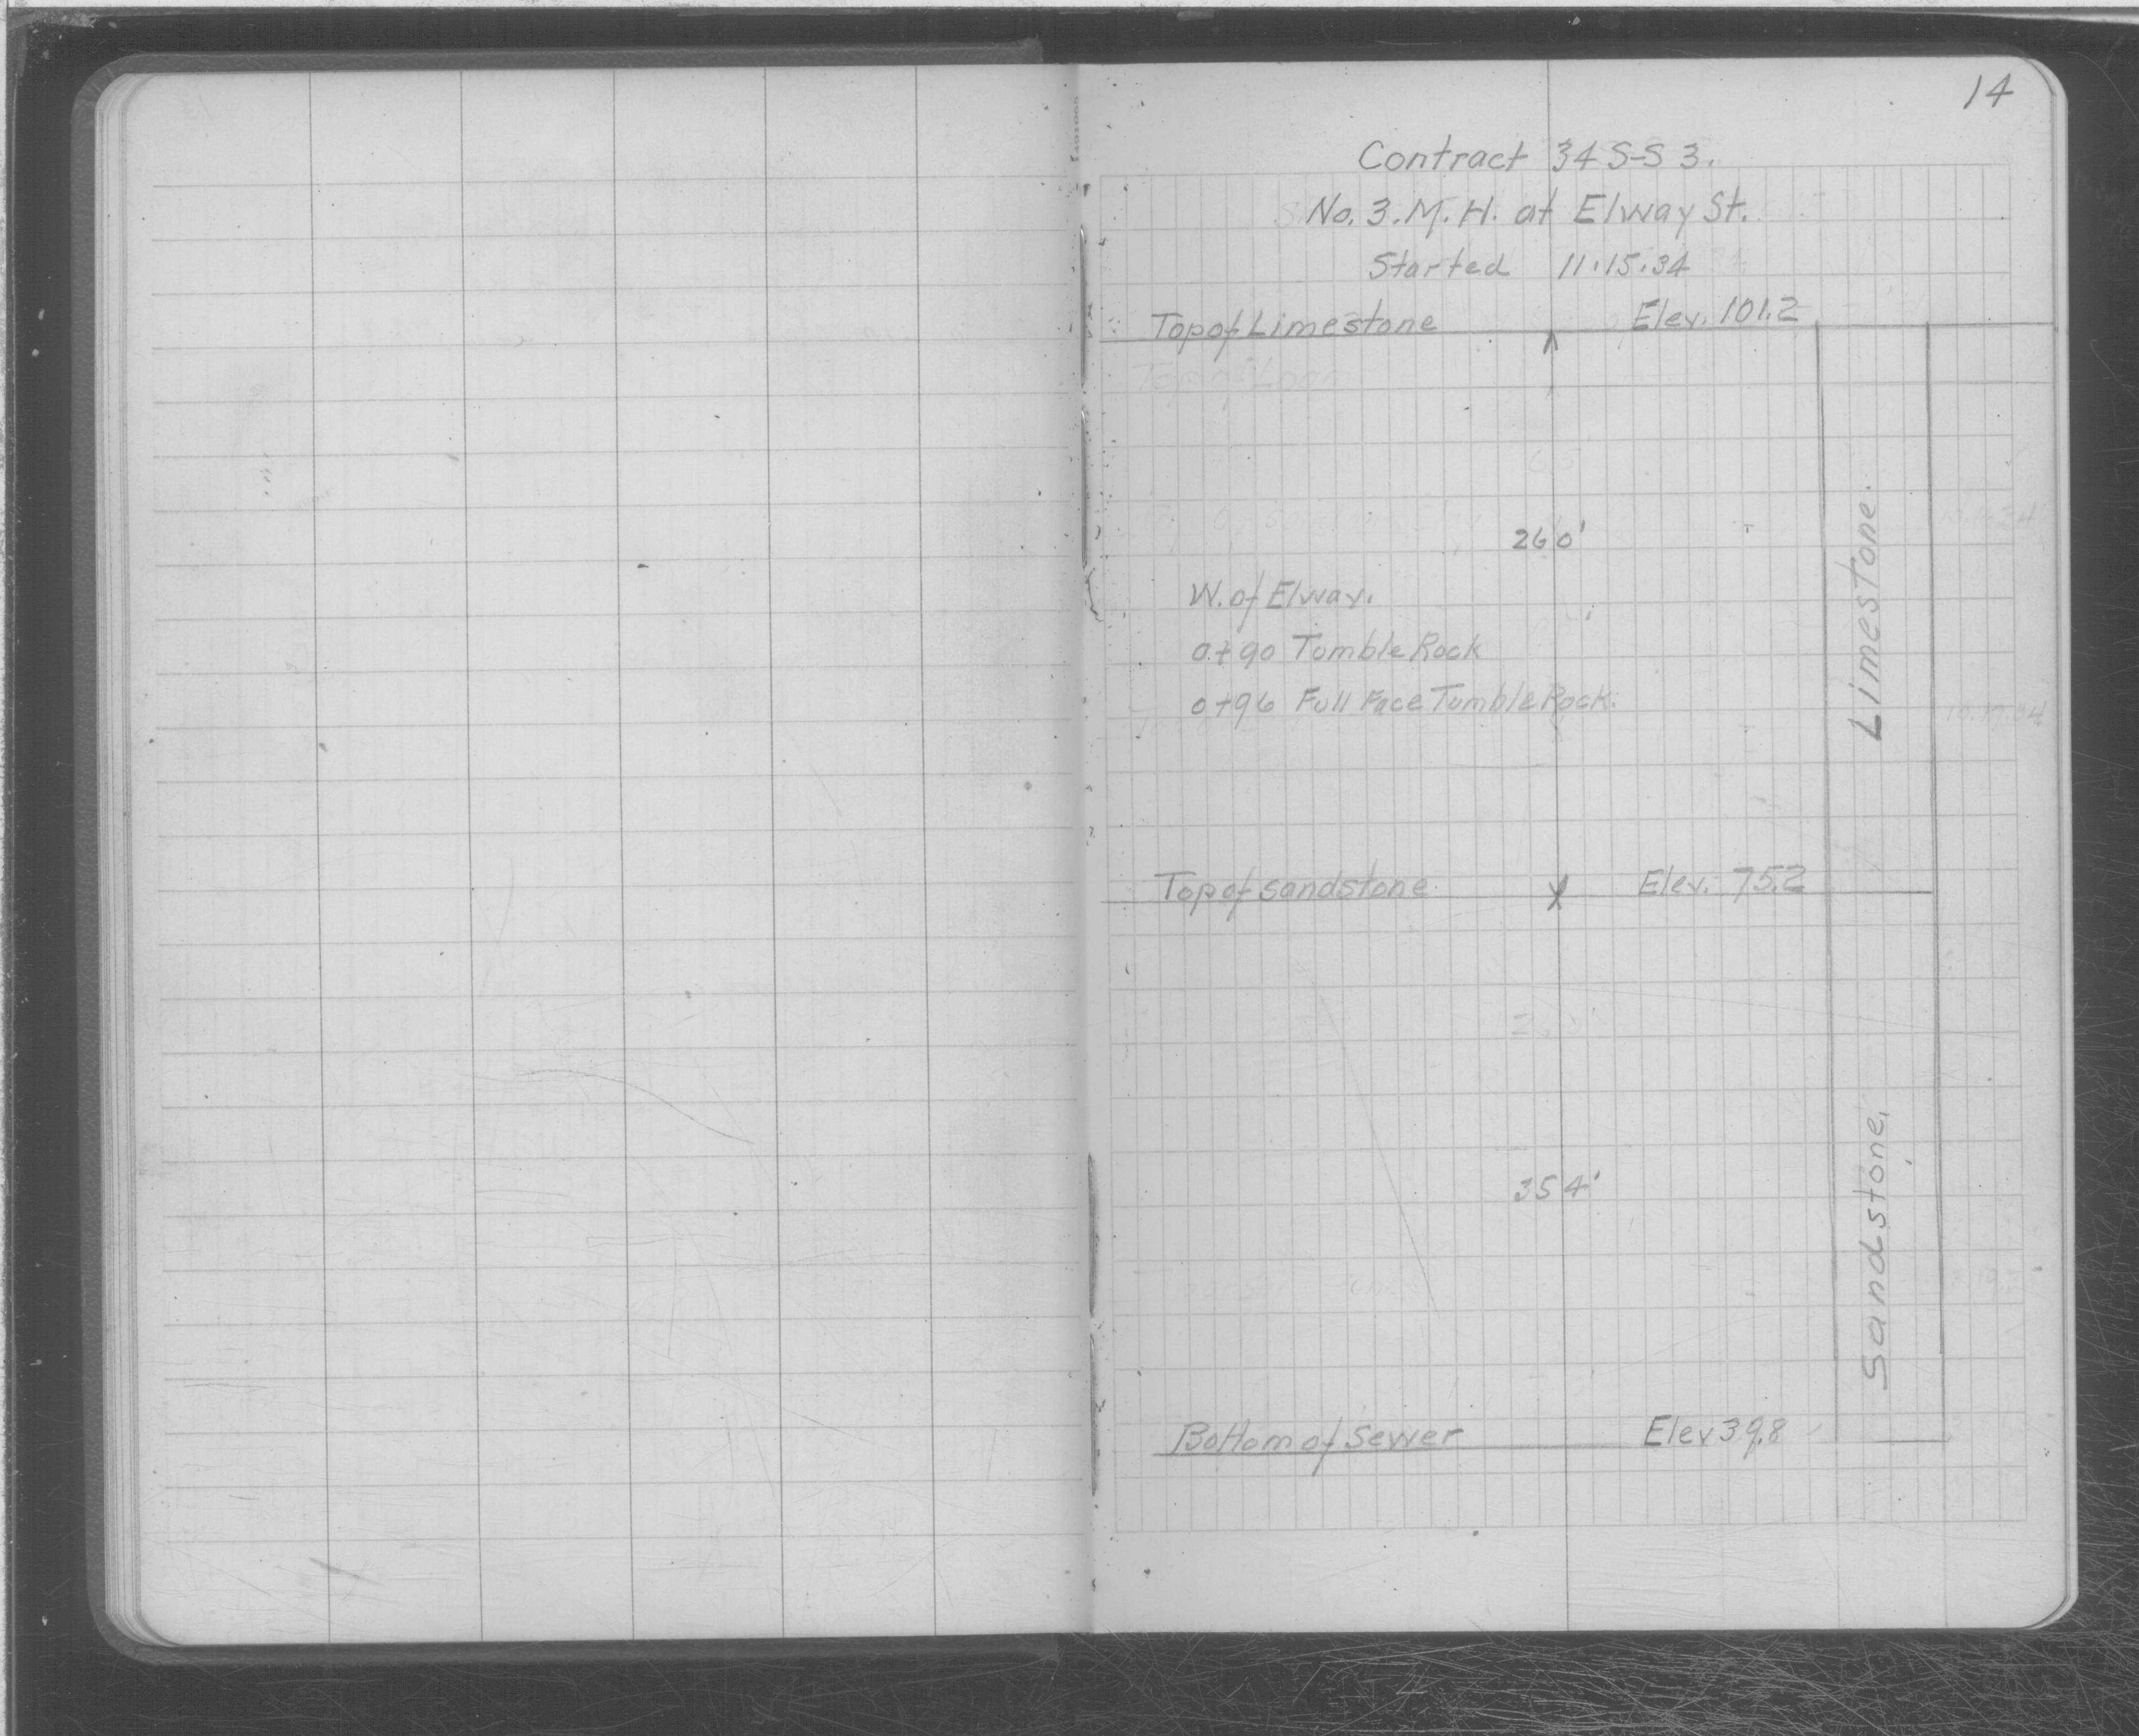 14
Contract 34 S-S 3.
No. 3. M. H. at Elway St.
Started 11.15.34
Top of Limestone Elev. 101.2
26 0'
W. of Elway.
0+90 Tumble Rock
0+96 Full Face Tumble Rock.
Limestone.
Top of sandstone Elev. 75.2
35 4'
Sandstone.
Bottom of Sewer Elev 39.8